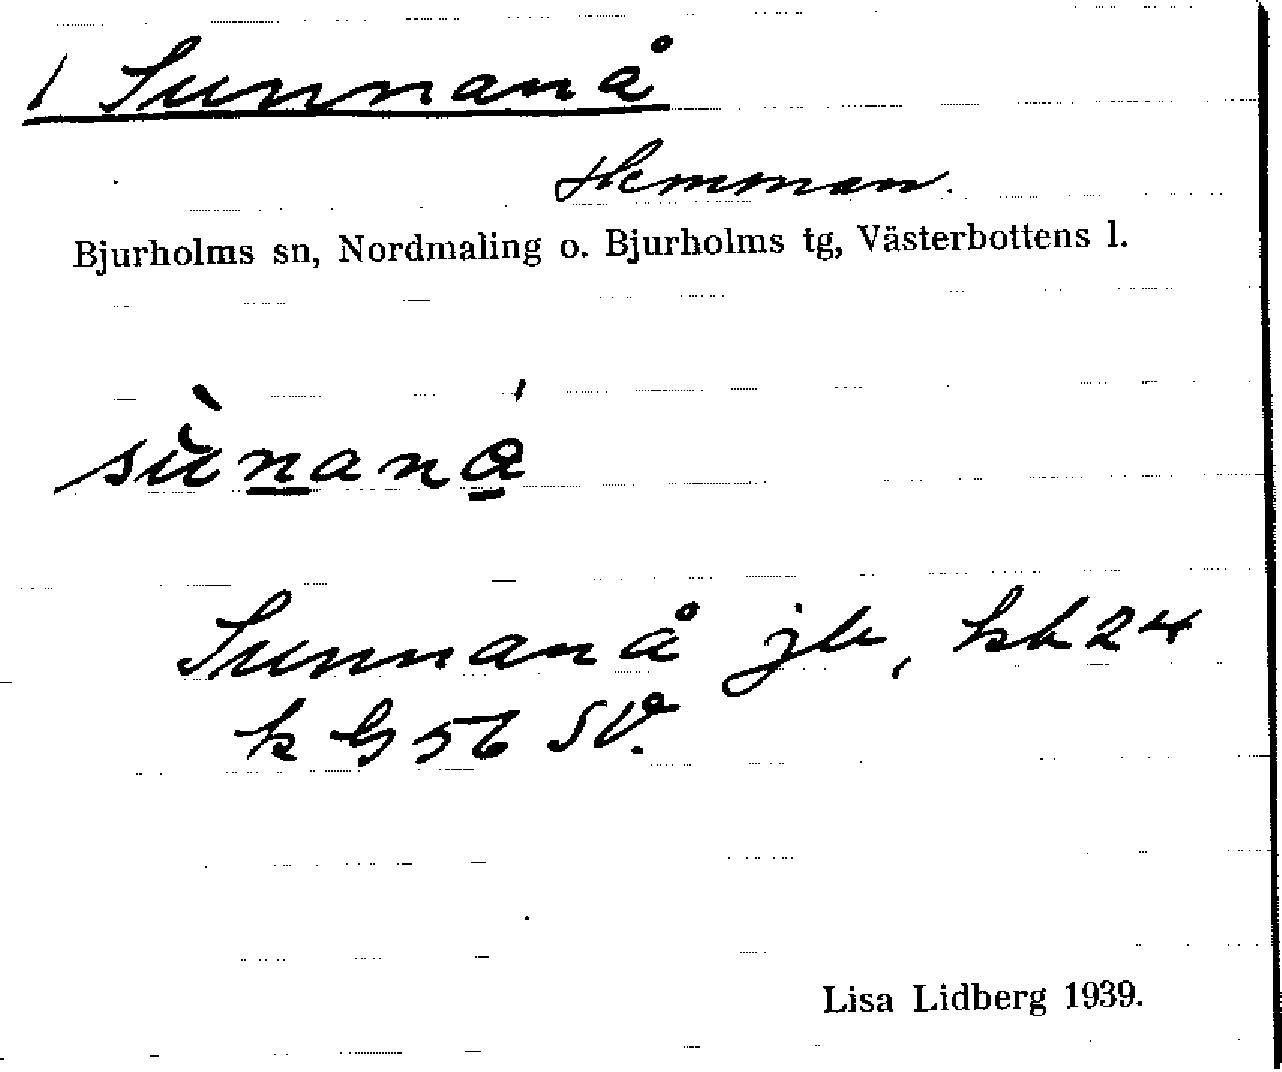 1 Sunnanå
Hemman.
Bjurholms sn, Nordmaling o. Bjurholms tg, Västerbottens l.
sùnaná̊
Sunnanå jb, kb 24
k G 56 SV.
Lisa Lidberg 1939.